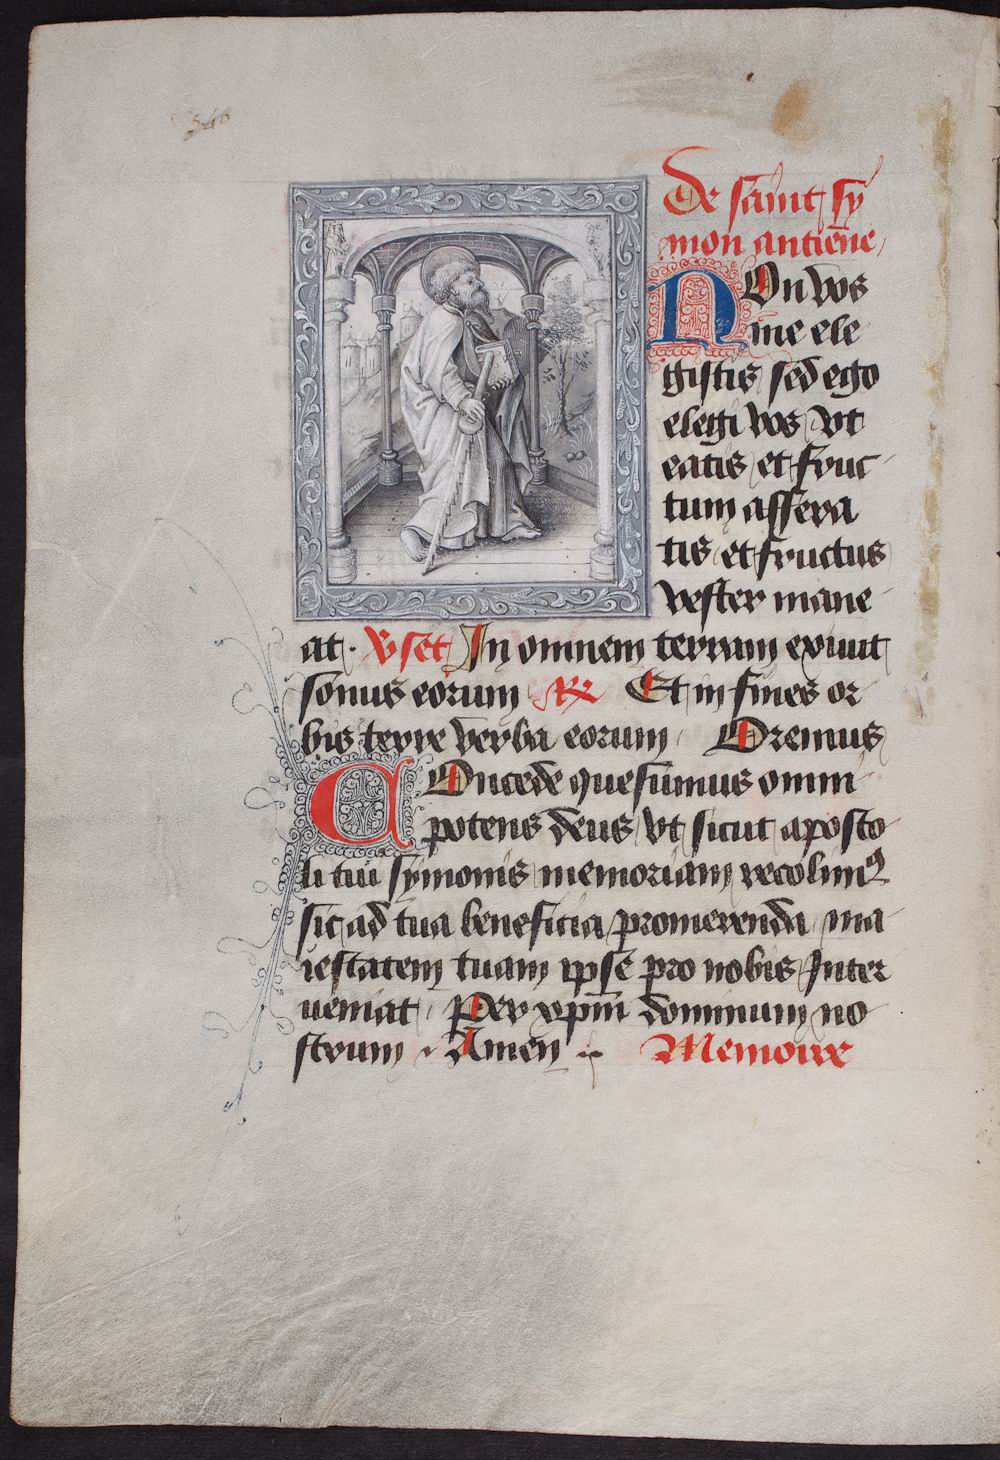 De saint sy
mon antiene
NOn vos
me ele
gistis sed ego
elegi vos vt
eatis et fruc
tum affera
tis et fructus
vester mane
at. vset In omnem terram exiuit
sonus eorum R Et in fines or
bis terre verba eorum Oremus
COncede quesumus omni
potens deus vt sicut aposto
li tui symonis memoriam recolim9
sic ad tua beneficia promerenda ma
iestatem tuam ipse pro nobis Inter
ueniat. Per xpm dominum no
strum. Amen .. Memoire